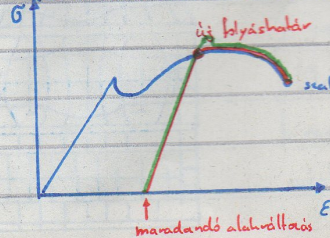 σ
új folyáshatár
sza
ε
maradandó alakváltozás